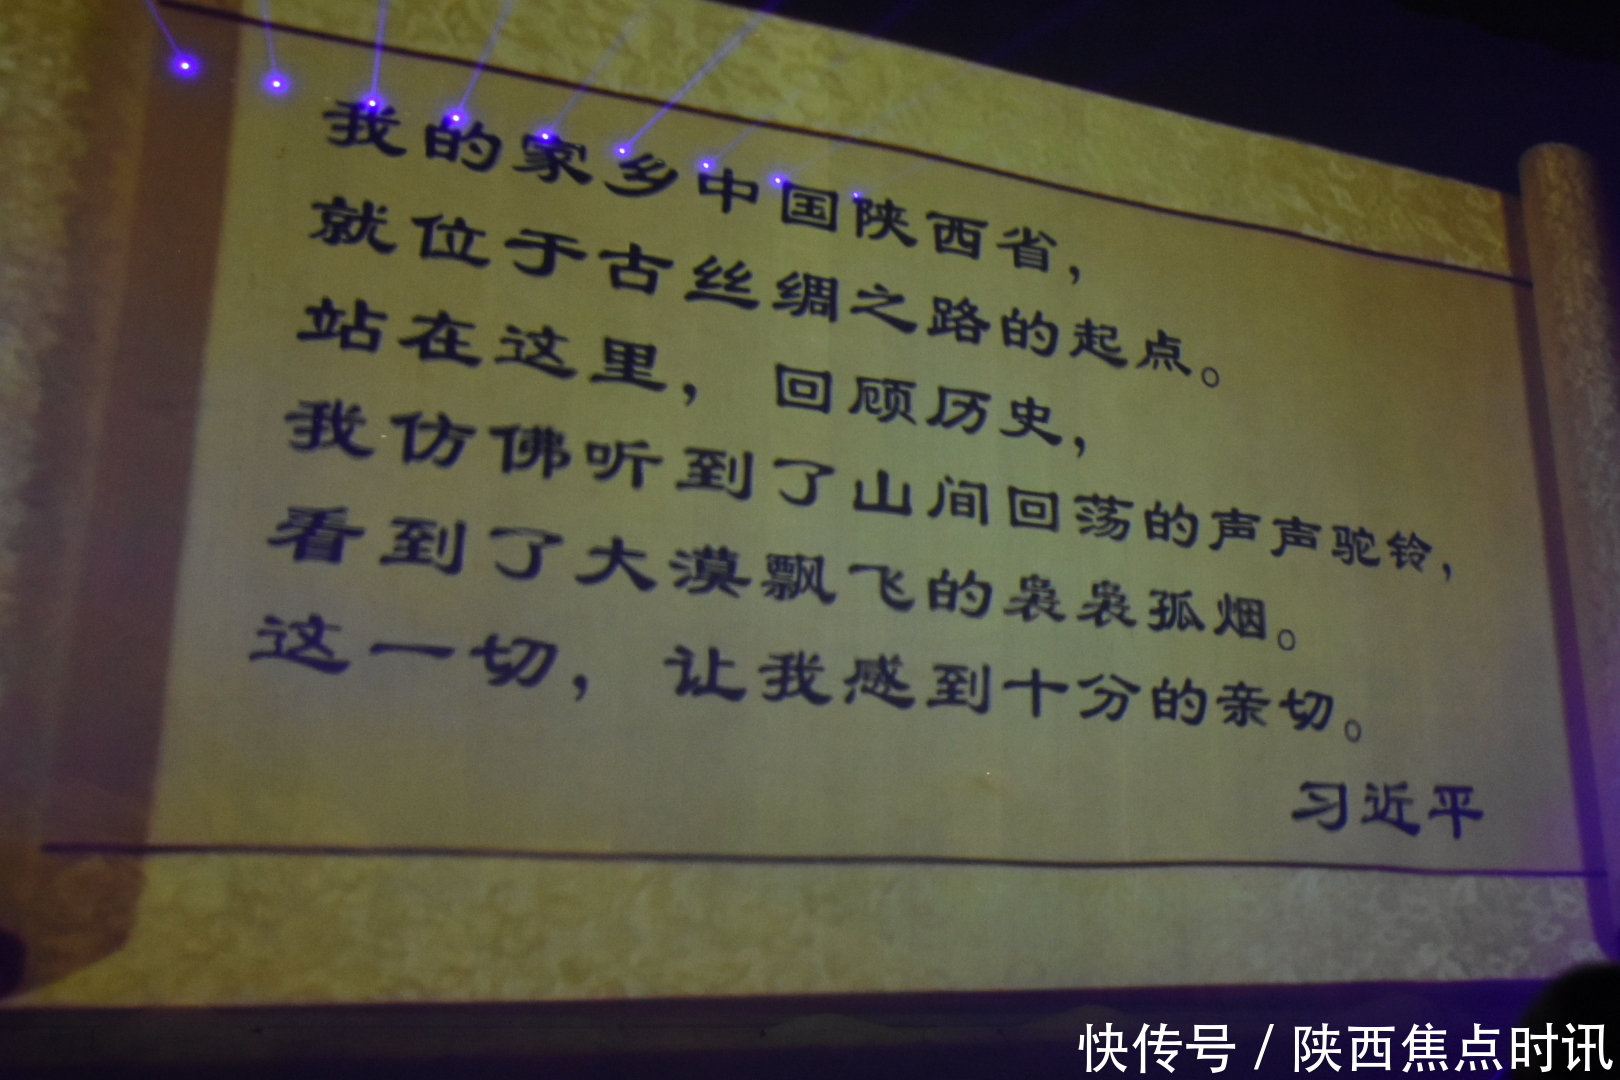 我的家乡中国陕西省，
就位于古丝绸之路的起点。
站在这里，回顾历史，
我仿佛听到了山间回荡的声声驼铃，
看到了大漠飘飞的袅袅孤烟。
这一切，让我感到十分的亲切。
习近平
快传号 / 陕西焦点时讯